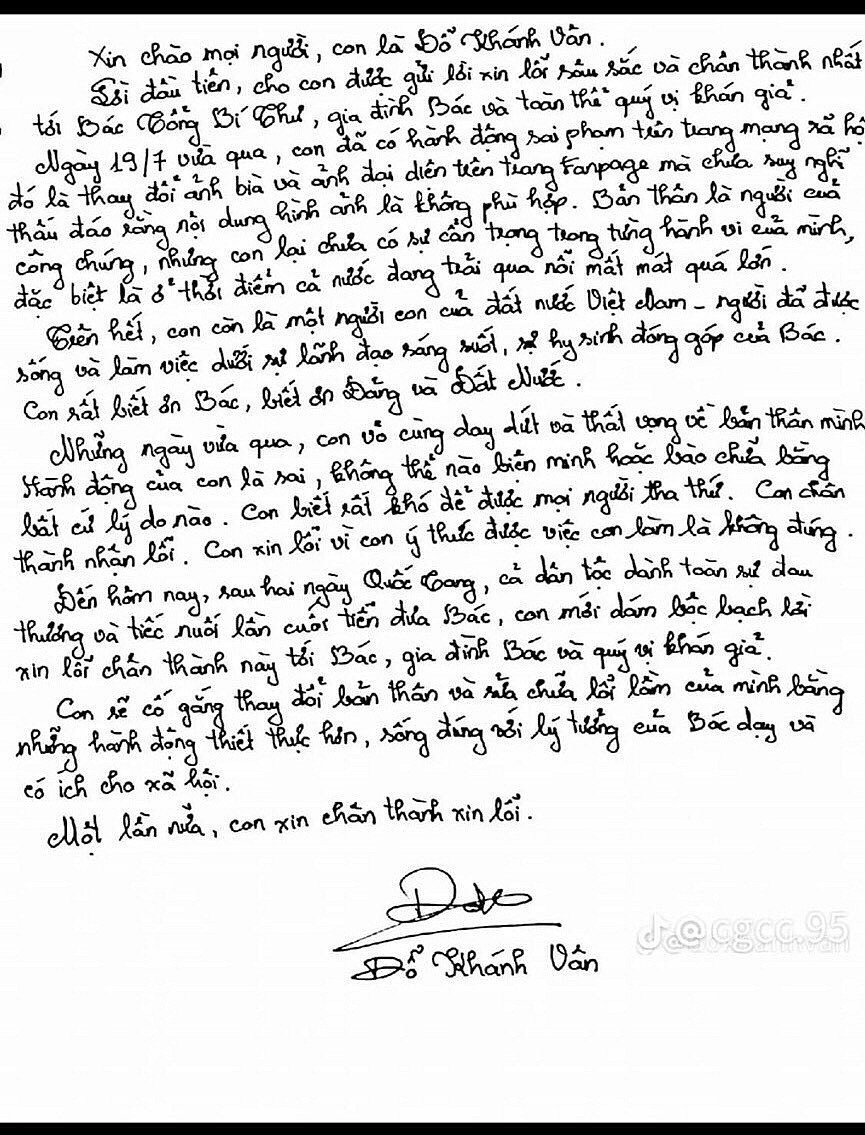 Xin chào mọi người, con là Đỗ Khánh Vân.
Lời đầu tiên, cho con được gửi lời xin lỗi sâu sắc và chân thành nhất
tới Bác Tổng Bí Thư, gia đình Bác và toàn thể quý vị khán giả.
Ngày 19/7 vừa qua, con đã có hành động sai phạm trên trang mạng xã hộ
đó là thay đổi ảnh bìa và ảnh đại diện trên trang Fanpage mà chưa suy nghĩ
thấu đáo rằng nội dung hình ảnh là không phù hợp. Bản thân là người của
công chúng, nhưng con lại chưa có sự cẩn trọng trong từng hành vi của mình,
đặc biệt là ở thời điểm cả nước đang trải qua nỗi mất mát quá lớn.
Trên hết, con còn là một người con của đất nước Việt Nam - người đã được
sống và làm việc dưới sự lãnh đạo sáng suốt, sự hy sinh đóng góp của Bác.
Con rất biết ơn Bác, biết ơn Đảng và Đất Nước.
Những ngày vừa qua, con vô cùng day dứt và thất vọng về bản thân mình
Hành động của con là sai, không thể nào biện minh hoặc bào chữa bằng
bất cứ lý do nào. Con biết rất khó để được mọi người tha thứ. Con chân
thành nhận lỗi. Con xin lỗi vì con ý thức được việc con làm là không đúng.
Đến hôm nay, sau hai ngày Quốc tang, cả dân tộc dành toàn sự đau
thương và tiếc nuối lần cuối tiễn đưa Bác, con mới dám bộc bạch lời
xin lỗi chân thành này tới Bác, gia đình Bác và quý vị khán giả.
Con sẽ cố gắng thay đổi bản thân và sửa chữa lỗi lầm của mình bằng
những hành động thiết thực hơn, sống đúng với lý tưởng của Bác dạy và
có ích cho xã hội.
Một lần nữa, con xin chân thành xin lỗi.
Đỗ Khánh Vân
@cgcc.95